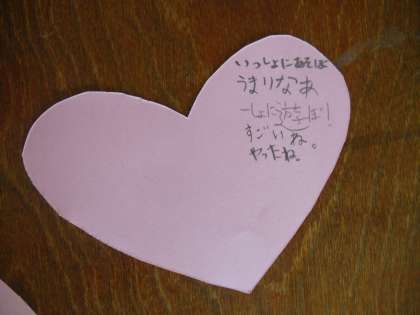 いっしょにあそぼ
うまりなあ
一しょに遊ぼ!
すごいね。
やったね。